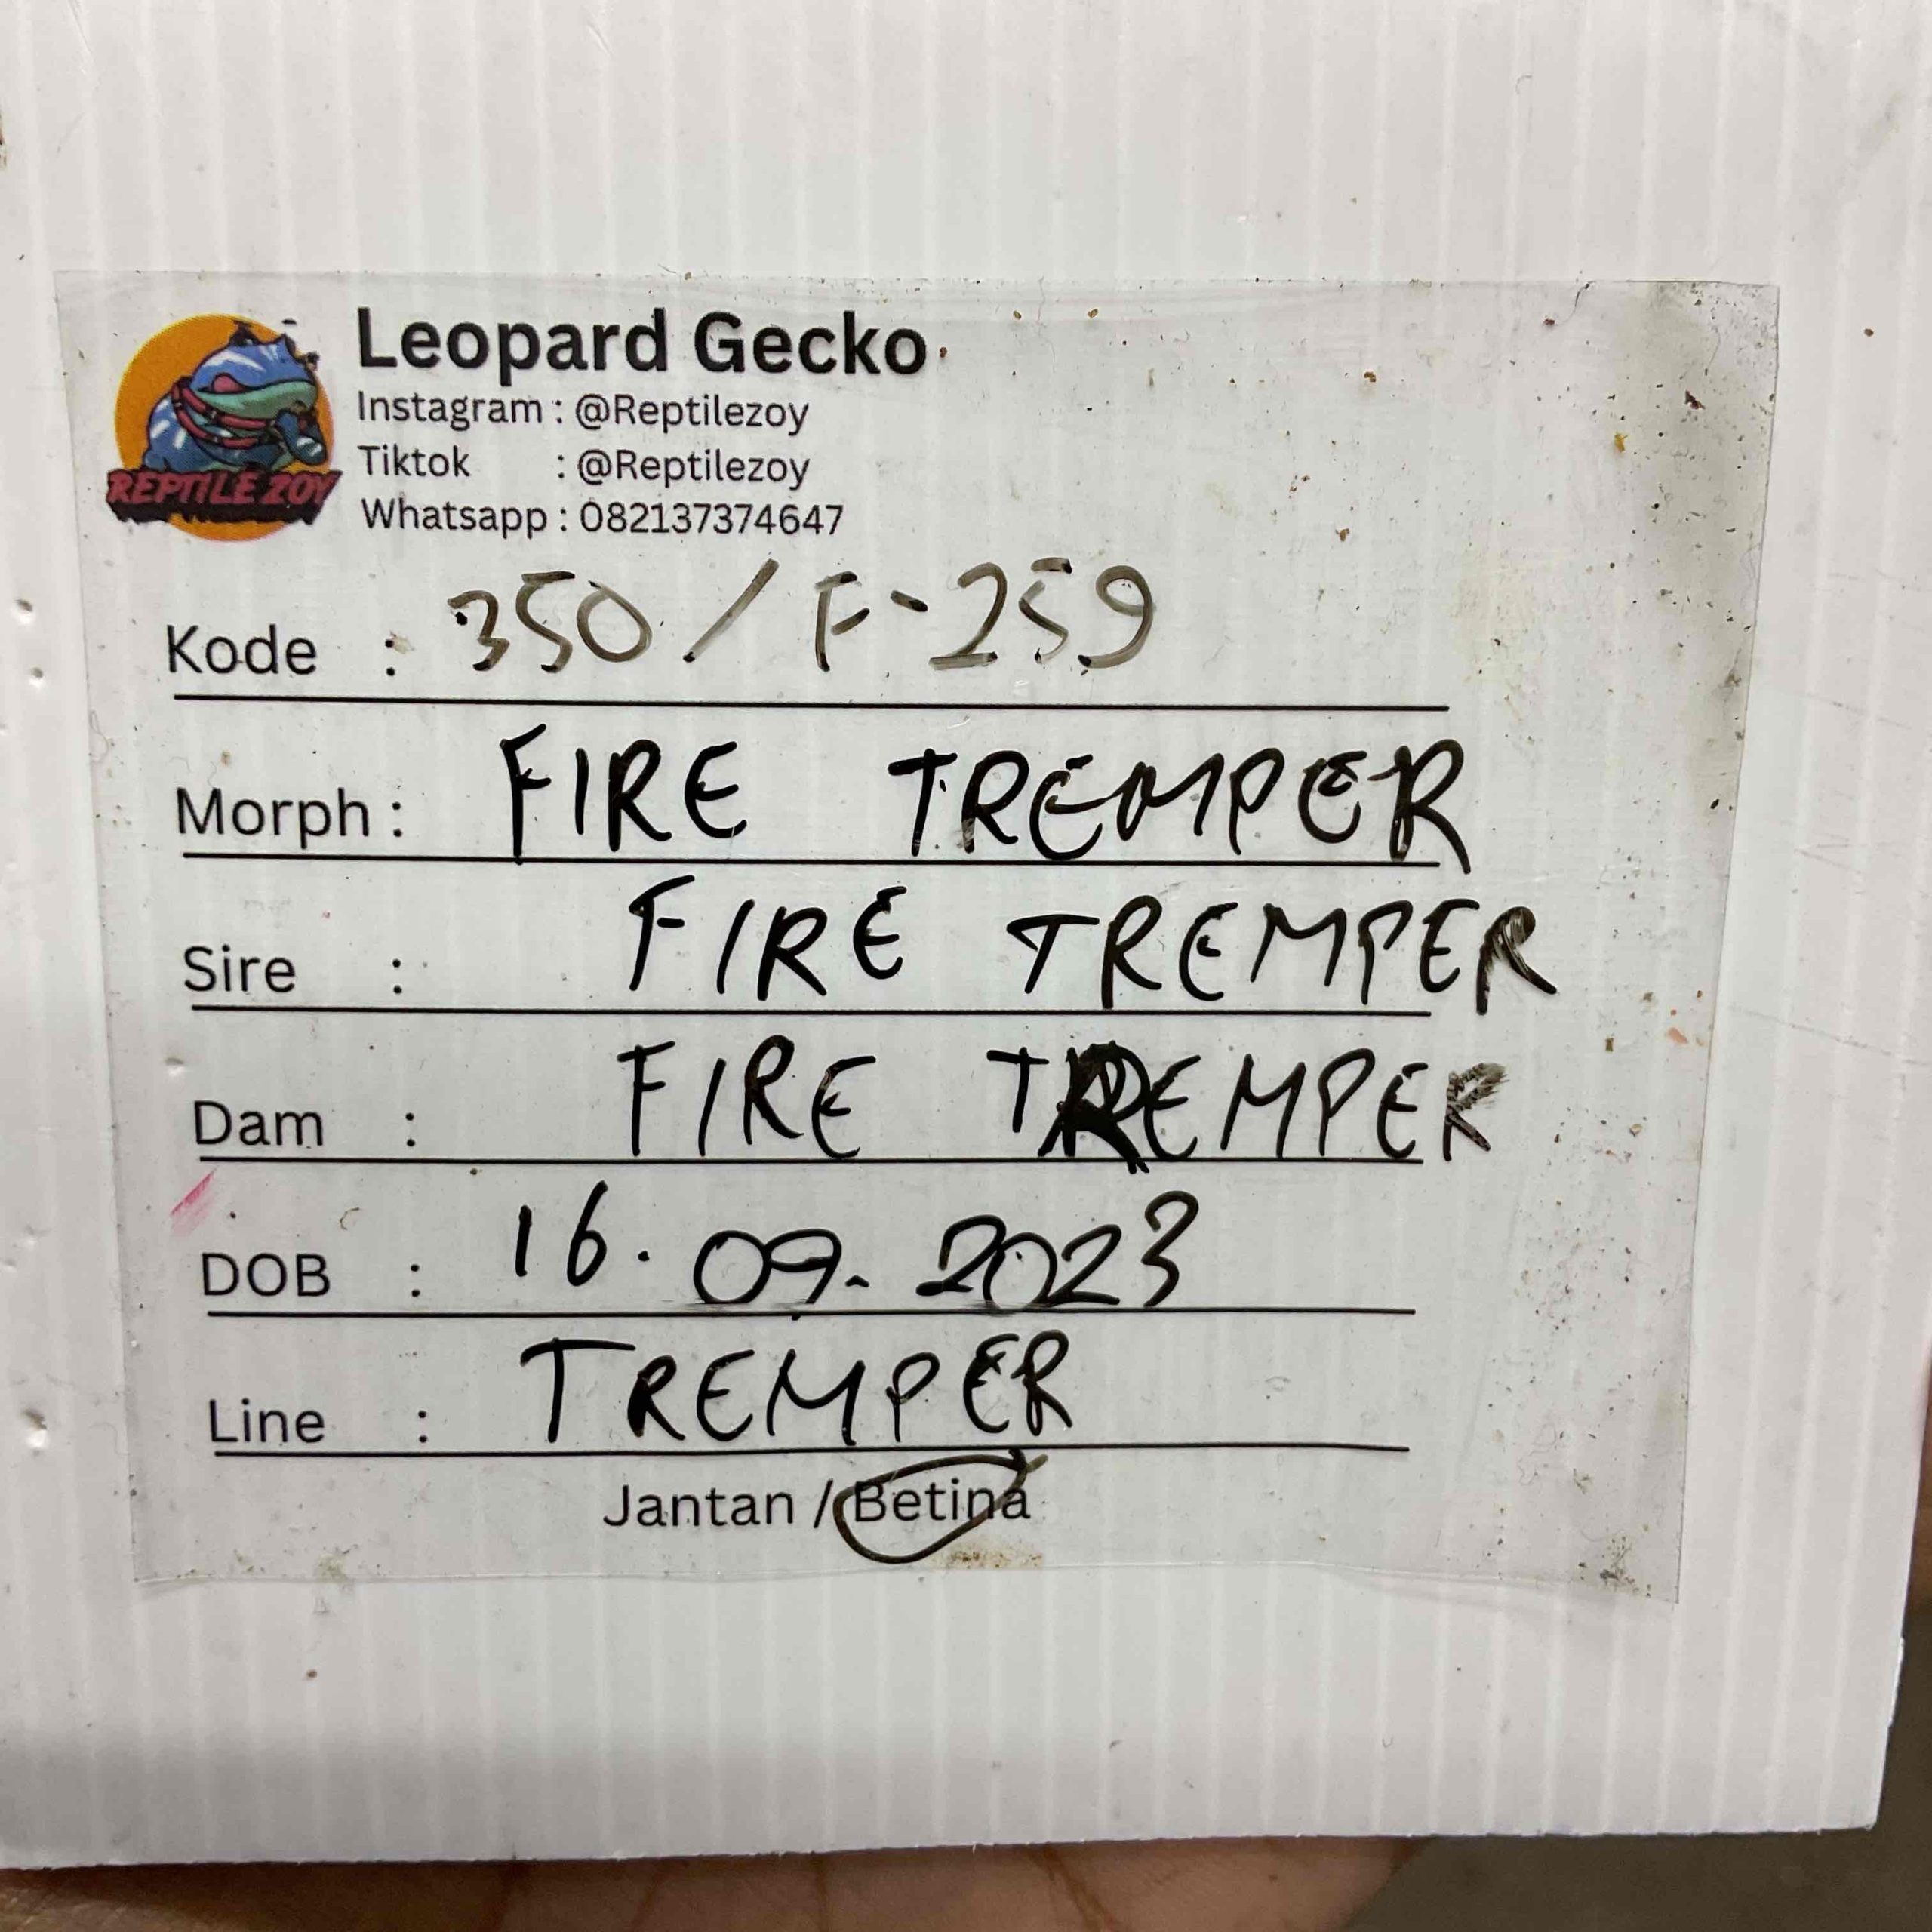 Leopard Gecko
Instagram : @Reptilezoy
Tiktok : @Reptilezoy
Whatsapp : 082137374647
REPTILE ZOY
Kode : 350 / F-259
Morph : FIRE TREMPER
Sire : FIRE TREMPER
Dam : FIRE TREMPER
DOB : 16.09.2023
Line : TREMPER
Jantan / Betina